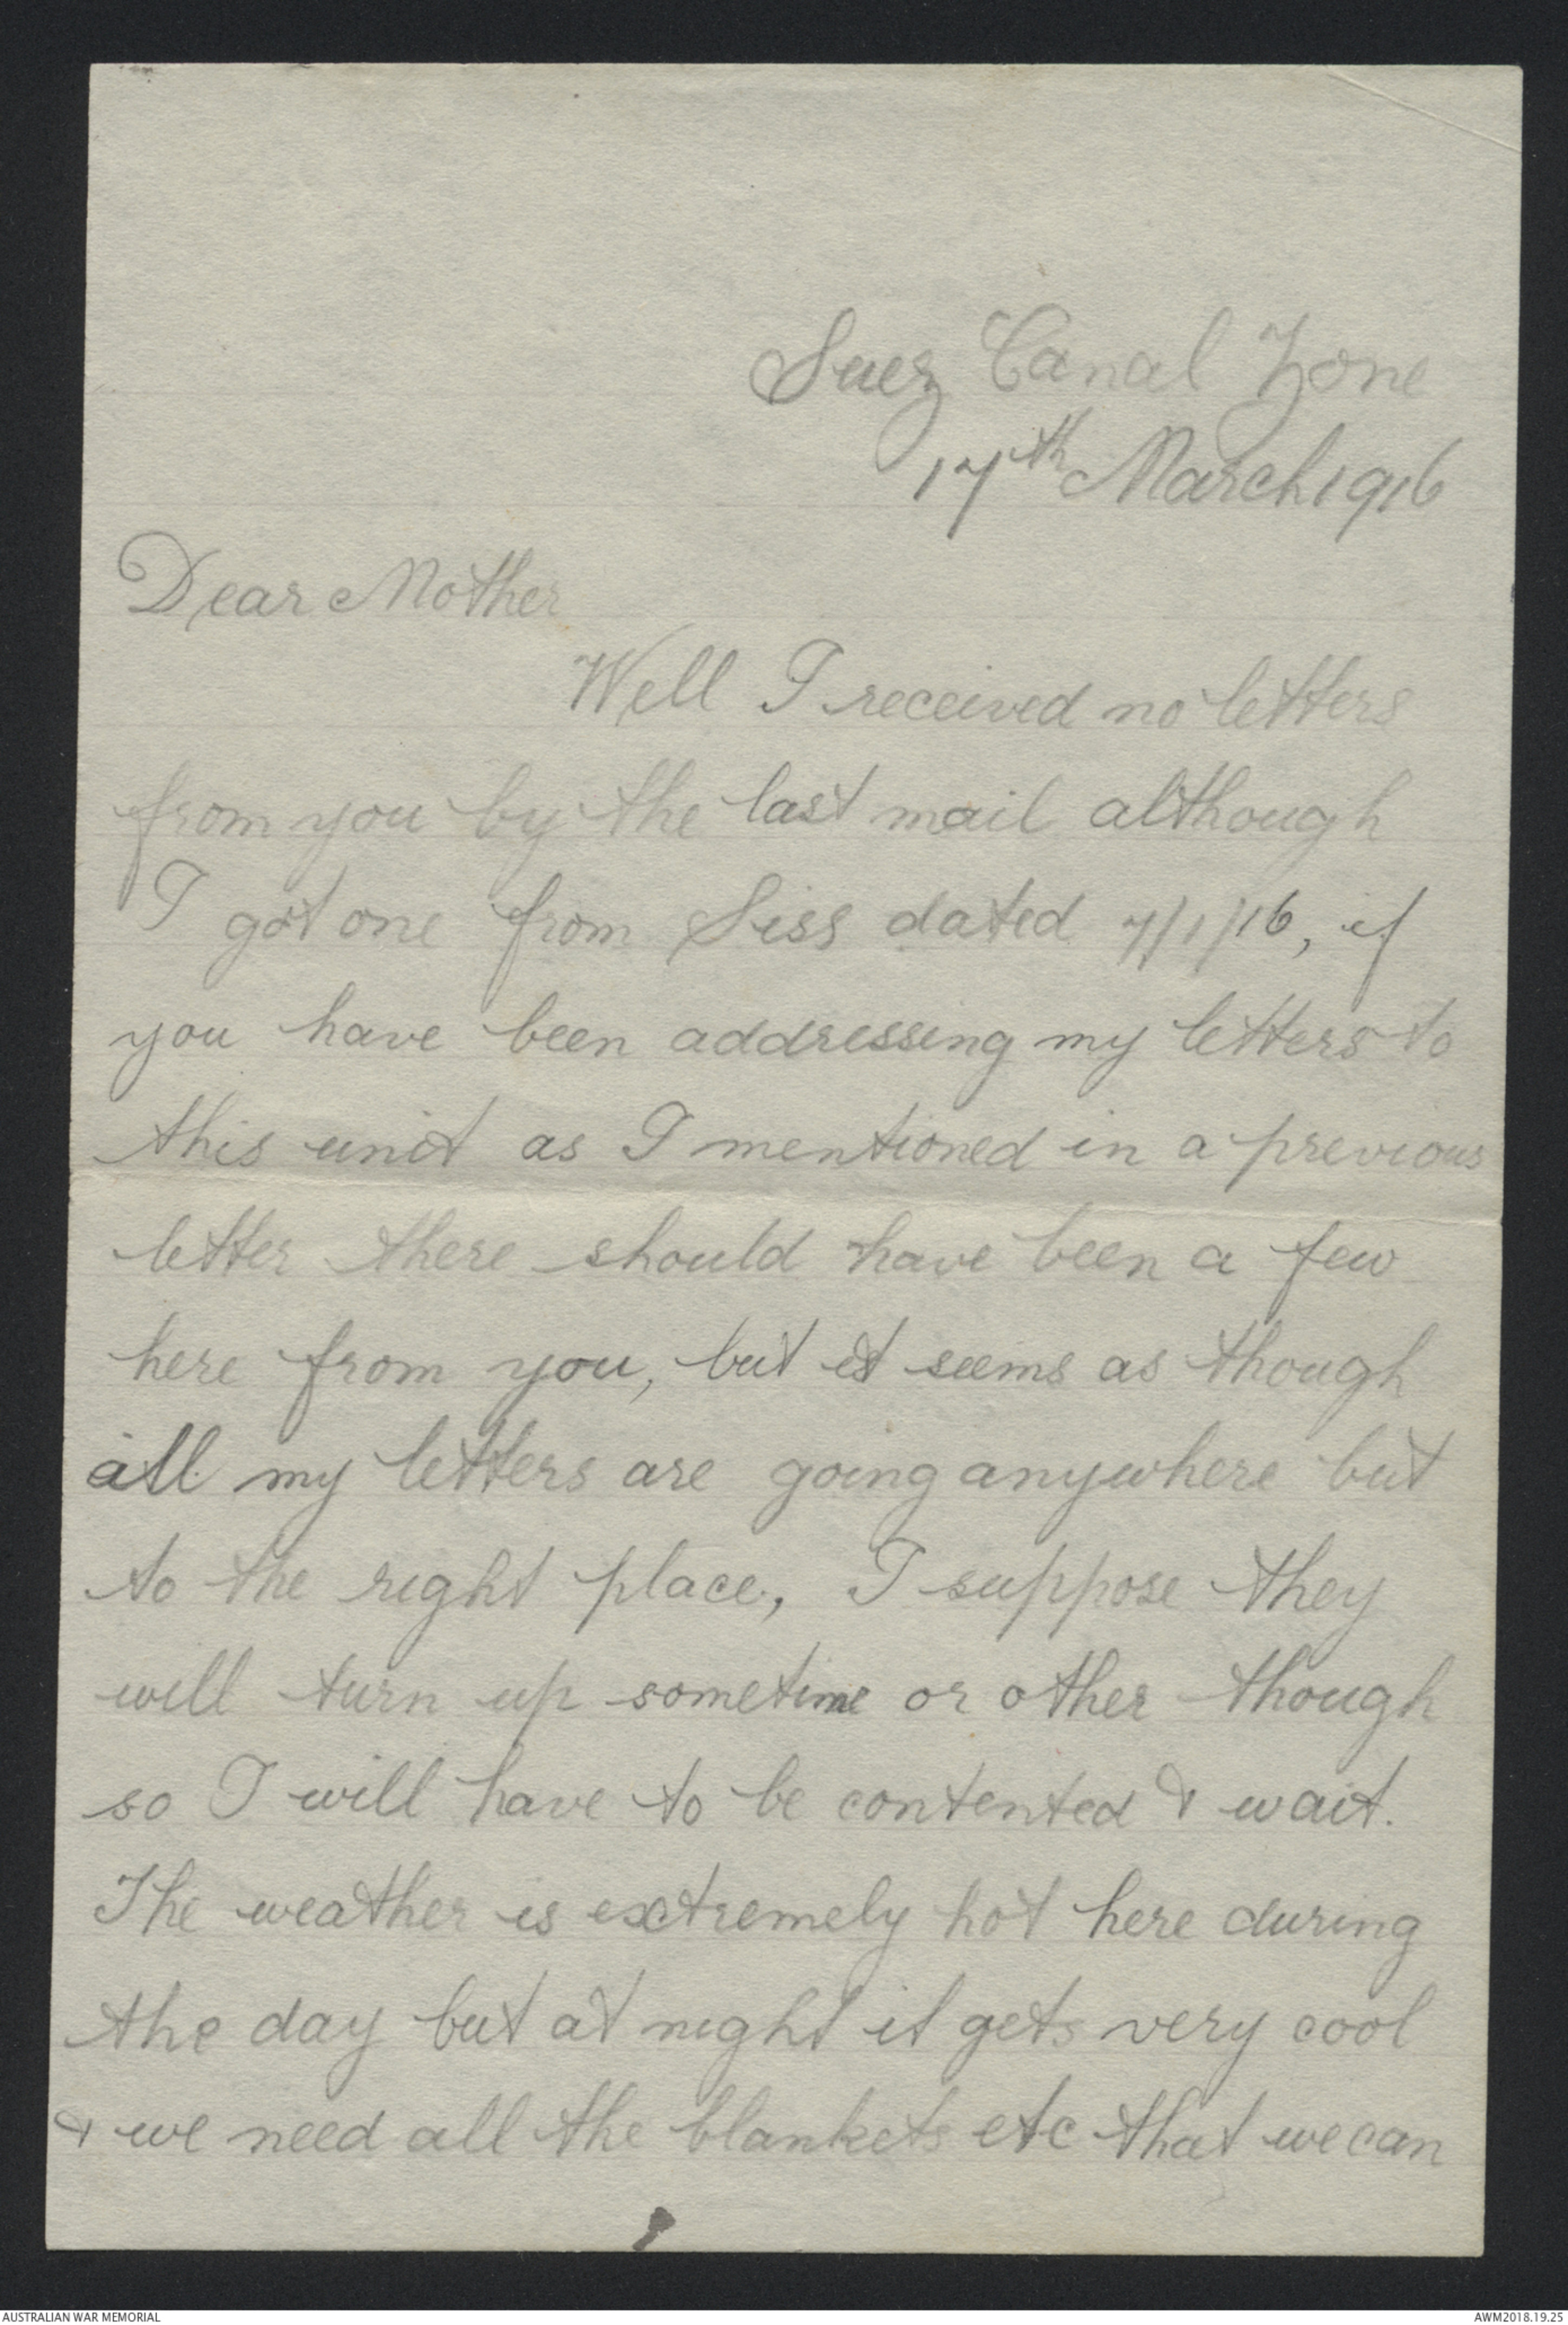 Suez Canal Zone
17th March 1916
Dear Mother
Well I received no letters
from you by the last mail although
I got one from Siss dated 7/1/16, if
you have been addressing my letters to
this unit as I mentioned in a previous
letter there should have been a few
here from you, but it seems as though
all my letters are going anywhere but
to the right place, I suppose they
will turn up sometime or other though
so I will have to be contented & wait.
The weather is extremely hot here during
the day but at night it gets very cool
& we need all the blankets etc that we can
AUSTRALIAN WAR MEMORIAL
AWM2018.19.25